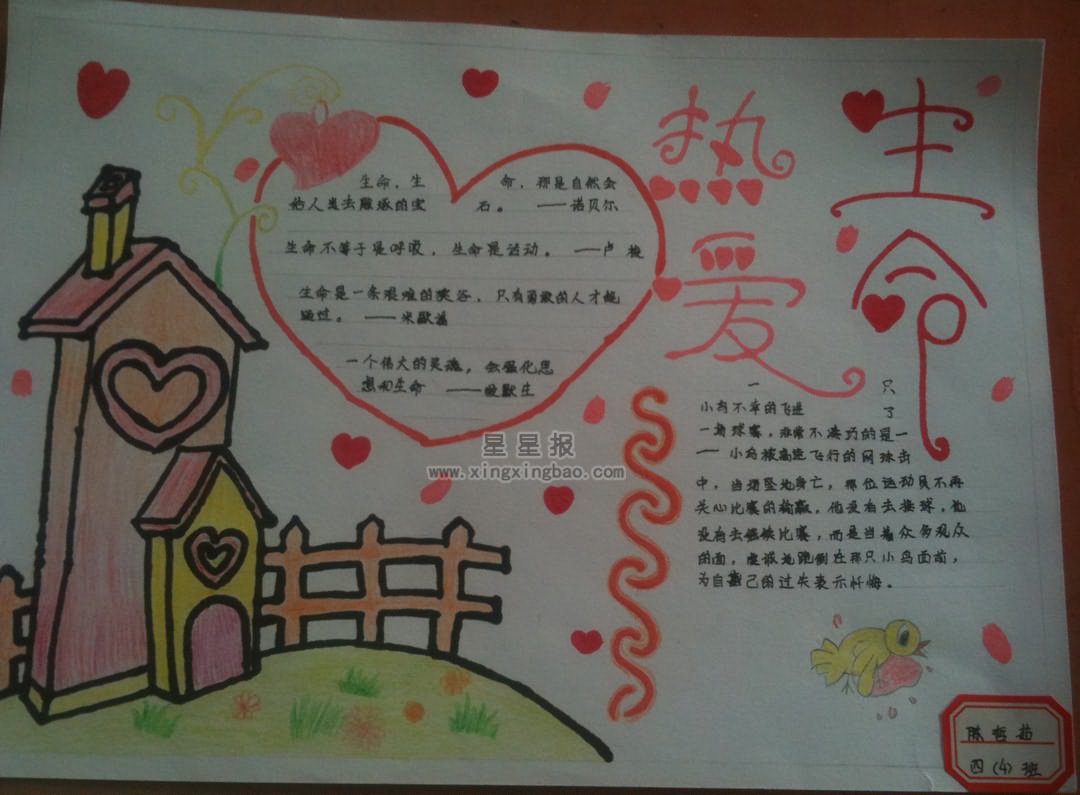 热爱
生命
生命，生命，那是自然会
给人类去雕琢的宝石。 ——诺贝尔
生命不等于是呼吸，生命是活动。 ——卢梭
生命是一条艰难的峡谷，只有勇敢的人才能
通过。 ——米歇潘
一个伟大的灵魂，会强化思
想和生命 ——爱默生
星星报
www.xingxingbao.com
一只
小鸟不幸的飞进了
一场球赛，非常不凑巧的是一
一小鸟被高速飞行的网球击
中，当场坠地身亡，那位运动员不再
关心比赛的输赢，他没有去接球，也
没有去继续比赛，而是当着众多观众
的面，虔诚地跪倒在那只小鸟面前，
为自己的过失表示忏悔。
陈哲茹
四（4）班